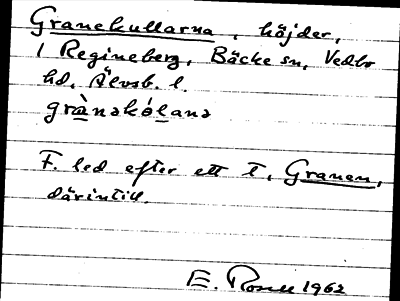 Granekullarna, höjder,
i Regineberg, Bäcke sn, Vedbo
hd, Älvsb. l.
grànəkólana
F. led efter ett t, Granen,
därintill.
E. 1962